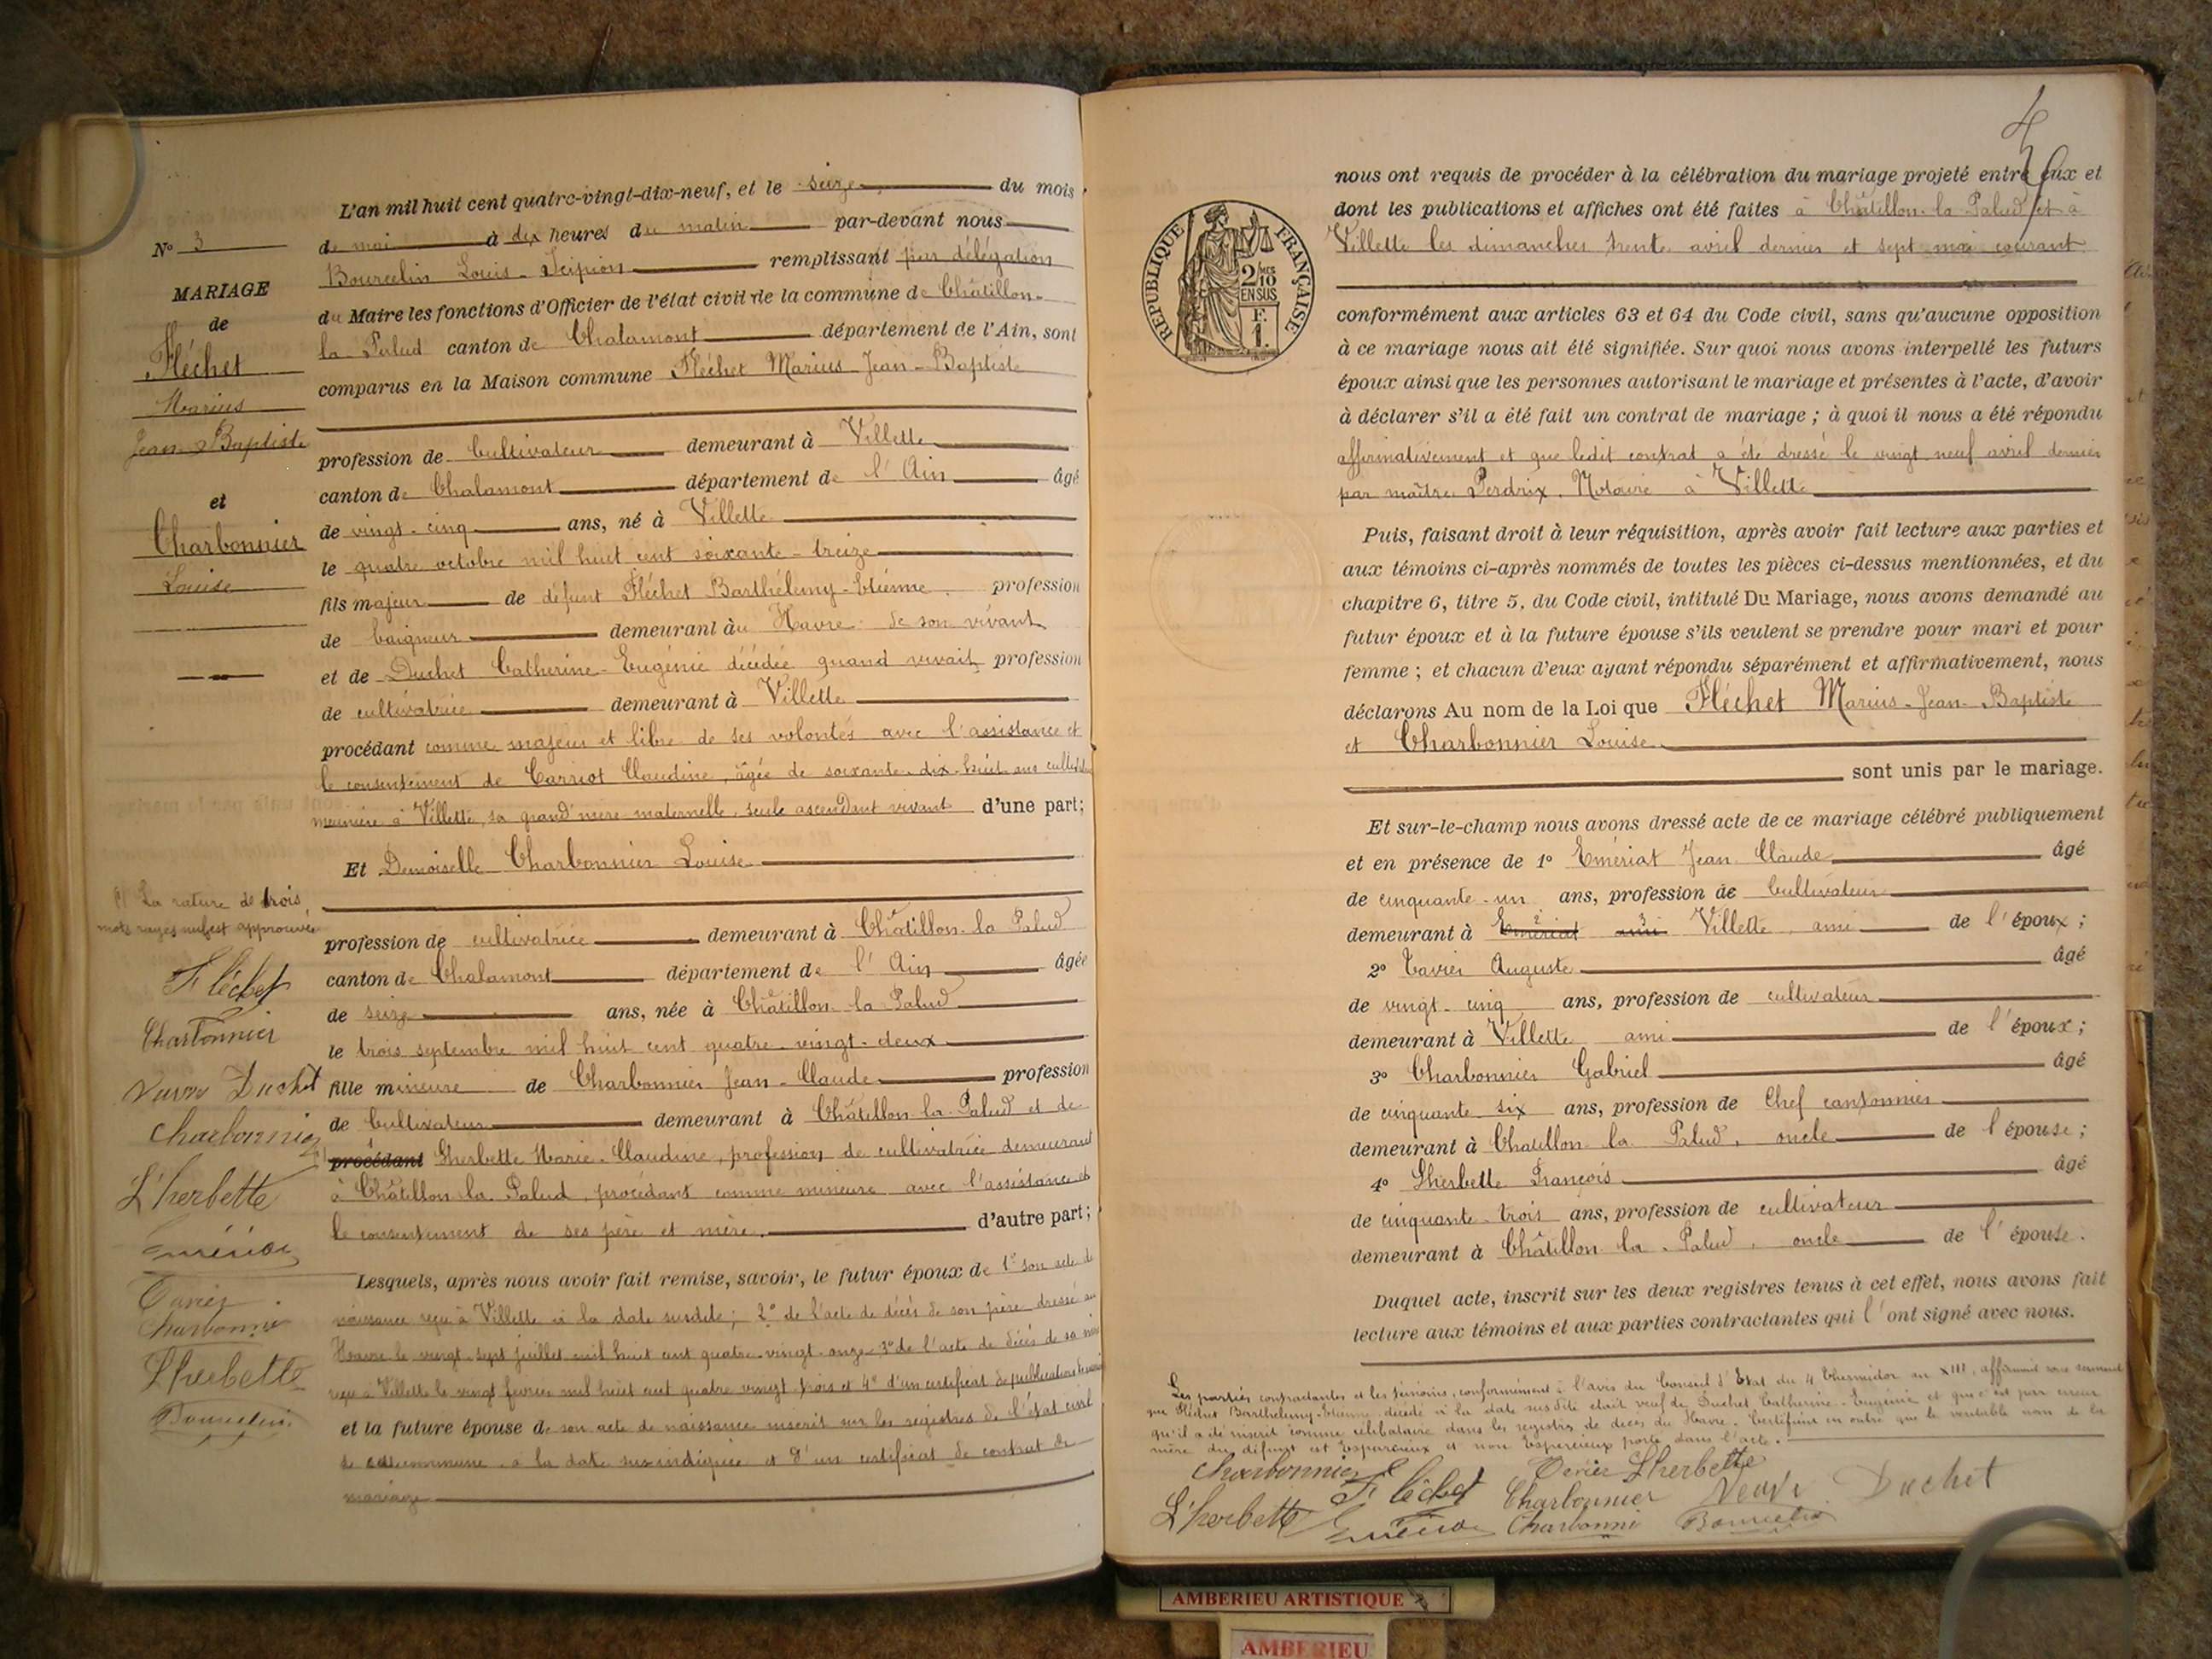 N° 3
MARIAGE
de
Fléchet
Marius
Jean-Baptiste
et
Charbonnier
Louise
L'an mil huit cent quatre-vingt-dix-neuf, et le seize du mois
de mai à dix heures du matin par-devant nous
Bourcelin Louis-Scipion remplissant par délégation
du Maire les fonctions d'Officier de l'état civil de la commune de Châtillon-
la Palud canton de Chalamont département de l'Ain, sont
comparus en la Maison commune Fléchet Marius-Jean-Baptiste
profession de Cultivateur demeurant à Villette
canton de Chalamont département de l'Ain âgé
de vingt-cinq ans, né à Villette
le quatre octobre mil huit cent soixante-treize
fils majeur de défunt Fléchet Barthélemy-Etienne profession
de baigneur demeurant au Havre de son vivant
et de Duchet Catherine-Eugénie décédée quand vivait profession
de cultivatrice demeurant à Villette
procédant comme majeur et libre de ses volontés avec l'assistance et
le consentement de Carriot Claudine, âgée de soixante-dix-huit ans
meunière à Villette, sa grand'mère maternelle, seule ascendant vivant d'une part;
Et Demoiselle Charbonnier Louise
profession de cultivatrice demeurant à Châtillon-la Palud
canton de Chalamont département de l'Ain âgée
de seize ans, née à Châtillon-la-Palud
le trois septembre mil huit cent quatre-vingt-deux
fille mineure de Charbonnier Jean-Claude profession
de Cultivateur demeurant à Châtillon-la-Palud et de
procédant Lherbette Marie-Claudine, profession de cultivatrice demeurant
à Châtillon-la-Palud, procédant comme mineure avec l'assistance et
le consentement de ses père et mère. d'autre part;
Lesquels, après nous avoir fait remise, savoir, le futur époux de 1° son acte de
naissance reçu à Villette à la date susdite; 2° de l'acte de décès de son père dressé au
Havre le vingt-sept juillet mil huit cent quatre-vingt-onze 3° de l'acte de décès de sa mère
reçu à Villette le vingt février mil huit cent quatre vingt trois et 4° d'un certificat de publication
et la future épouse de son acte de naissance inscrit sur les registres de l'état civil
de cette commune à la date sus-indiquée et d'un certificat de contrat de
mariage
La rature de trois
mots rayés nuls est approuvée
Fléchet
Charbonnier
Veuve Duchet
Charbonnier
L'herbette
Emériat
Tavier
Charbonnier
Lherbette
Bourcelin
4
RÉPUBLIQUE FRANÇAISE
2/10 MES
EN SUS
F.
1.
nous ont requis de procéder à la célébration du mariage projeté entre eux et
dont les publications et affiches ont été faites à Châtillon-la-Palud et à
Villette les dimanches trente avril dernier et sept mai courant
conformément aux articles 63 et 64 du Code civil, sans qu'aucune opposition
à ce mariage nous ait été signifiée. Sur quoi nous avons interpellé les futurs
époux ainsi que les personnes autorisant le mariage et présentes à l'acte, d'avoir
à déclarer s'il a été fait un contrat de mariage; à quoi il nous a été répondu
affirmativement et que ledit contrat a été dressé le vingt neuf avril dernier
par maître Perdrix, Notaire à Villette
Puis, faisant droit à leur réquisition, après avoir fait lecture aux parties et
aux témoins ci-après nommés de toutes les pièces ci-dessus mentionnées, et du
chapitre 6, titre 5, du Code civil, intitulé Du Mariage, nous avons demandé au
futur époux et à la future épouse s'ils veulent se prendre pour mari et pour
femme; et chacun d'eux ayant répondu séparément et affirmativement, nous
déclarons Au nom de la Loi que Fléchet Marius-Jean-Baptiste
et Charbonnier Louise
sont unis par le mariage.
Et sur-le-champ nous avons dressé acte de ce mariage célébré publiquement
et en présence de 1° Emériat Jean Claude âgé
de cinquante-un ans, profession de Cultivateur
demeurant à Emériat ami Villette ami de l'époux;
2° Tavier Auguste âgé
de vingt-cinq ans, profession de cultivateur
demeurant à Villette ami de l'époux;
3° Charbonnier Gabriel âgé
de cinquante six ans, profession de Chef cantonnier
demeurant à Chatillon la Palud, oncle de l'épouse;
4° Lherbette François âgé
de cinquante-trois ans, profession de cultivateur
demeurant à Châtillon-la-Palud, oncle de l'épouse.
Duquel acte, inscrit sur les deux registres tenus à cet effet, nous avons fait
lecture aux témoins et aux parties contractantes qui l'ont signé avec nous.
Les parties contractantes et les témoins, conformément à l'avis du Conseil d'Etat du 4 thermidor an XIII, affirment sous serment
que Fléchet Barthélemy-Etienne, décédé à la date susdite était veuf de Duchet Catherine-Eugénie et que c'est par erreur
qu'il a été inscrit comme célibataire dans les registres de décès du Havre. Certifient en outre que le véritable nom de la
mère du défunt est Esparcieux et non Espercieux porté dans l'acte.
Charbonnier Fléchet Tavier Lherbette
L'herbette Emériat Charbonnier Veuve Duchet
Charbonnier Bourcelin
AMBERIEU ARTISTIQUE
AMBERIEU